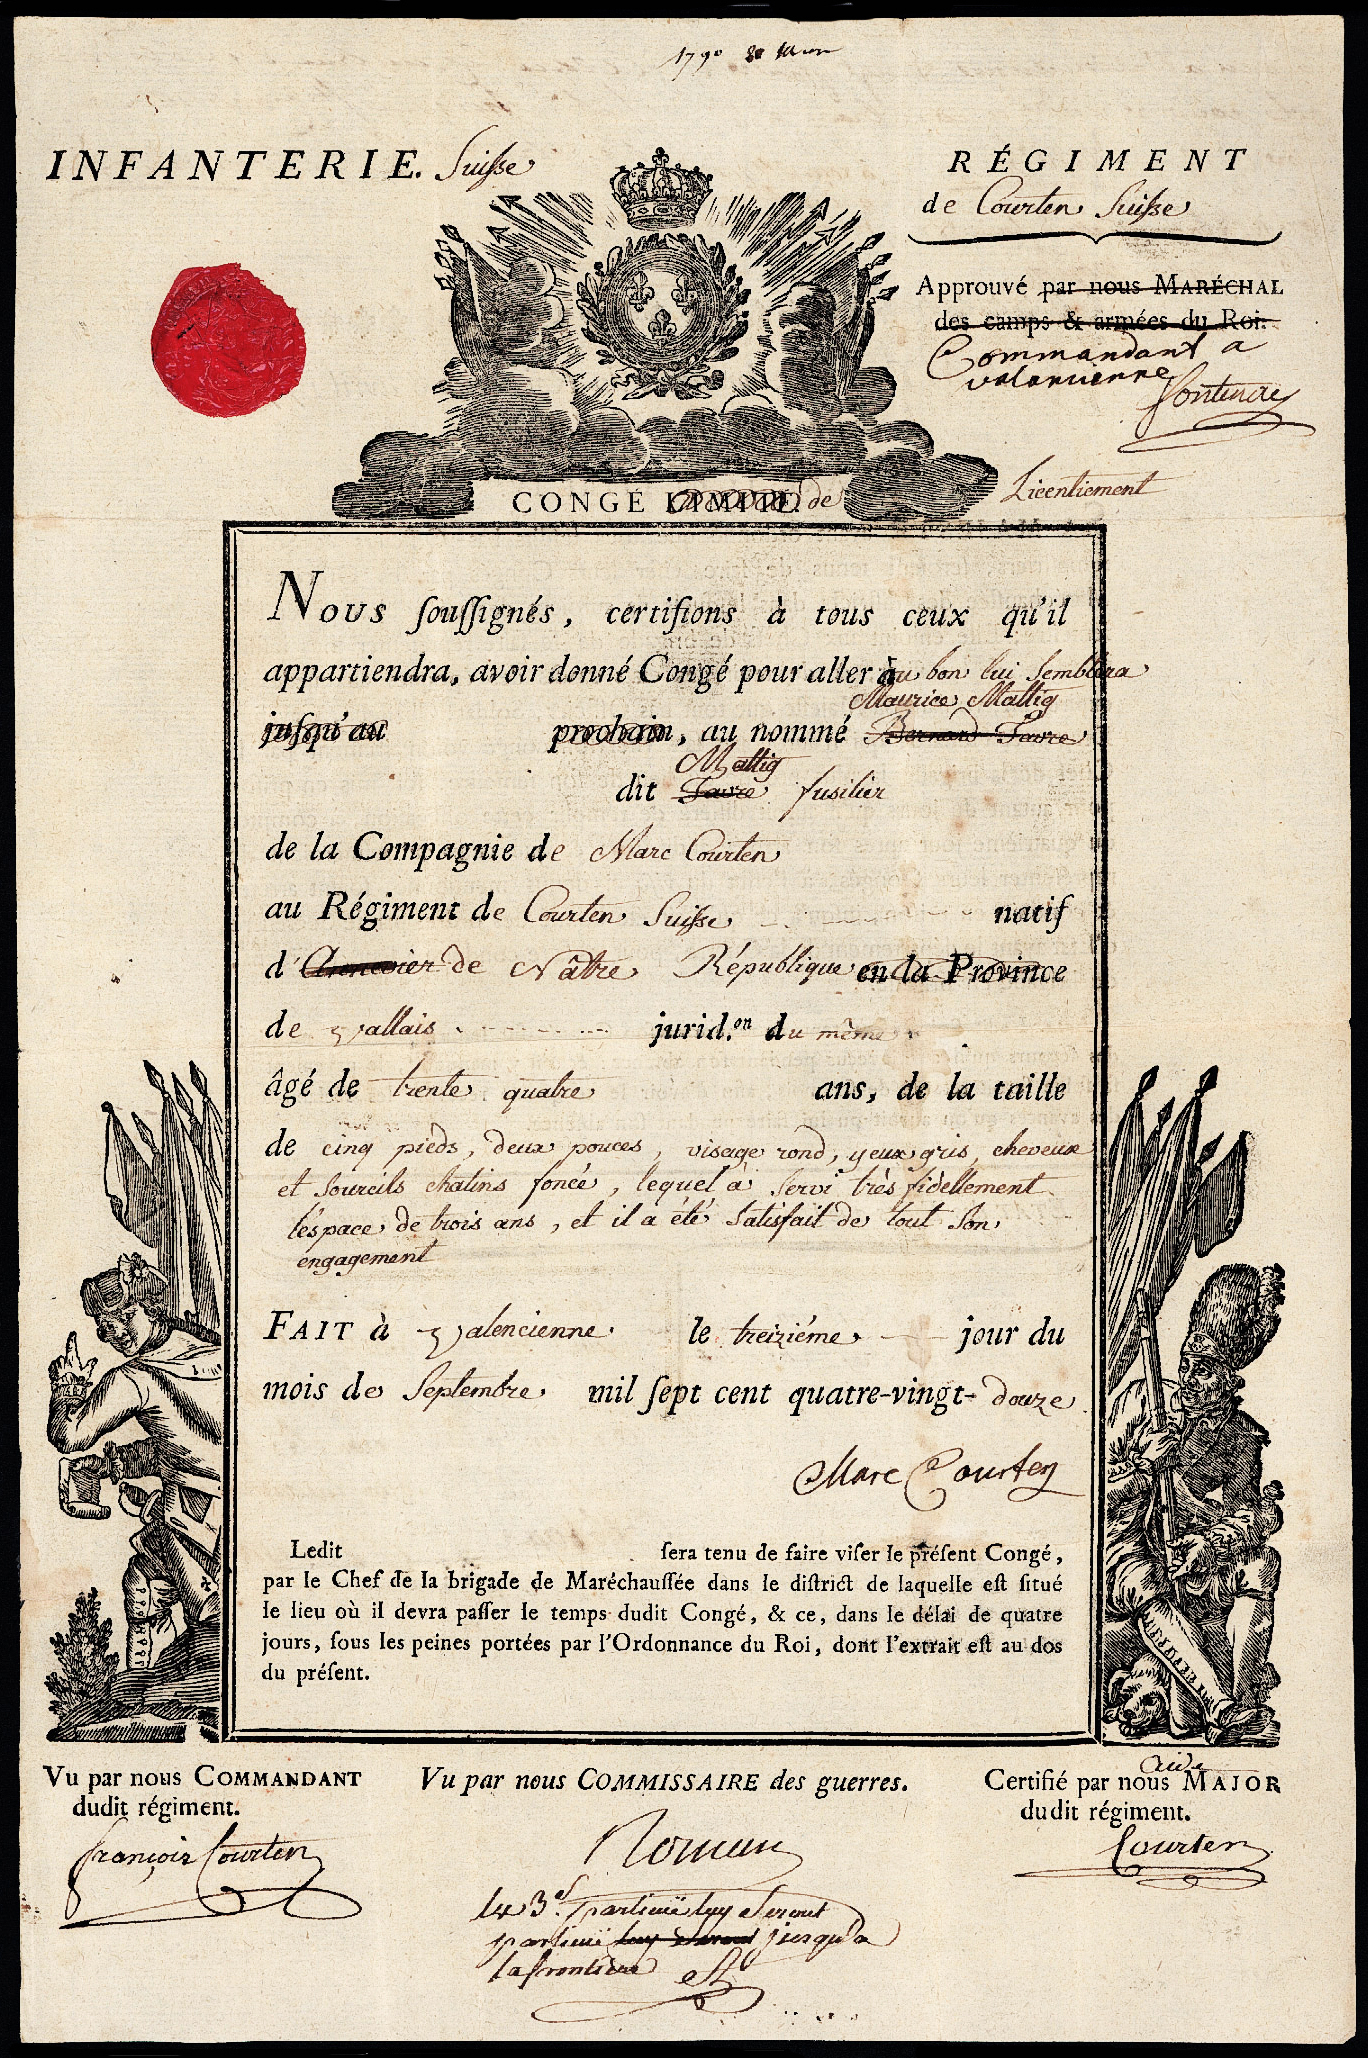 1790
INFANTERIE. Suisse
RÉGIMENT
de Courten Suisse
Approuvé par nous MARÉCHAL
des camps & armées du Roi.
Commandant a
valancienne
CONGÉ LIMITÉ. de Licentiement
Nous soussignés, certifions à tous ceux qu'il
appartiendra, avoir donné Congé pour aller à ou bon lui Semblera
Maurice Mattig
jusqu'au prochain, au nommé Bernard Favre
Mattig
dit Favre fusilier
de la Compagnie de Marc Courten
au Régiment de Courten Suisse natif
d' de Nâtre République en la Province
de Vallais jurid.on du même
âgé de trente quatre ans, de la taille
de cinq pieds, deux pouces, visage rond, yeux gris, cheveux
et Sourcils chatins foncé, lequel à Servi très fidèllement
l'éspace de trois ans, et il a été Satisfait de tout Son
engagement
FAIT à Valencienne le treiziéme jour du
mois de Septembre mil sept cent quatre-vingt-douze
Marc Courten
Ledit sera tenu de faire viser le présent Congé,
par le Chef de la brigade de Maréchaussée dans le district de laquelle est situé
le lieu où il devra passer le temps dudit Congé, & ce, dans le délai de quatre
jours, sous les peines portées par l'Ordonnance du Roi, dont l'extrait est au dos
du présent.
Vu par nous COMMANDANT
dudit régiment.
françois Courten
Vu par nous COMMISSAIRE des guerres.
jusqu'a
la frontiere
Aide
Certifié par nous MAJOR
dudit régiment.
Courten